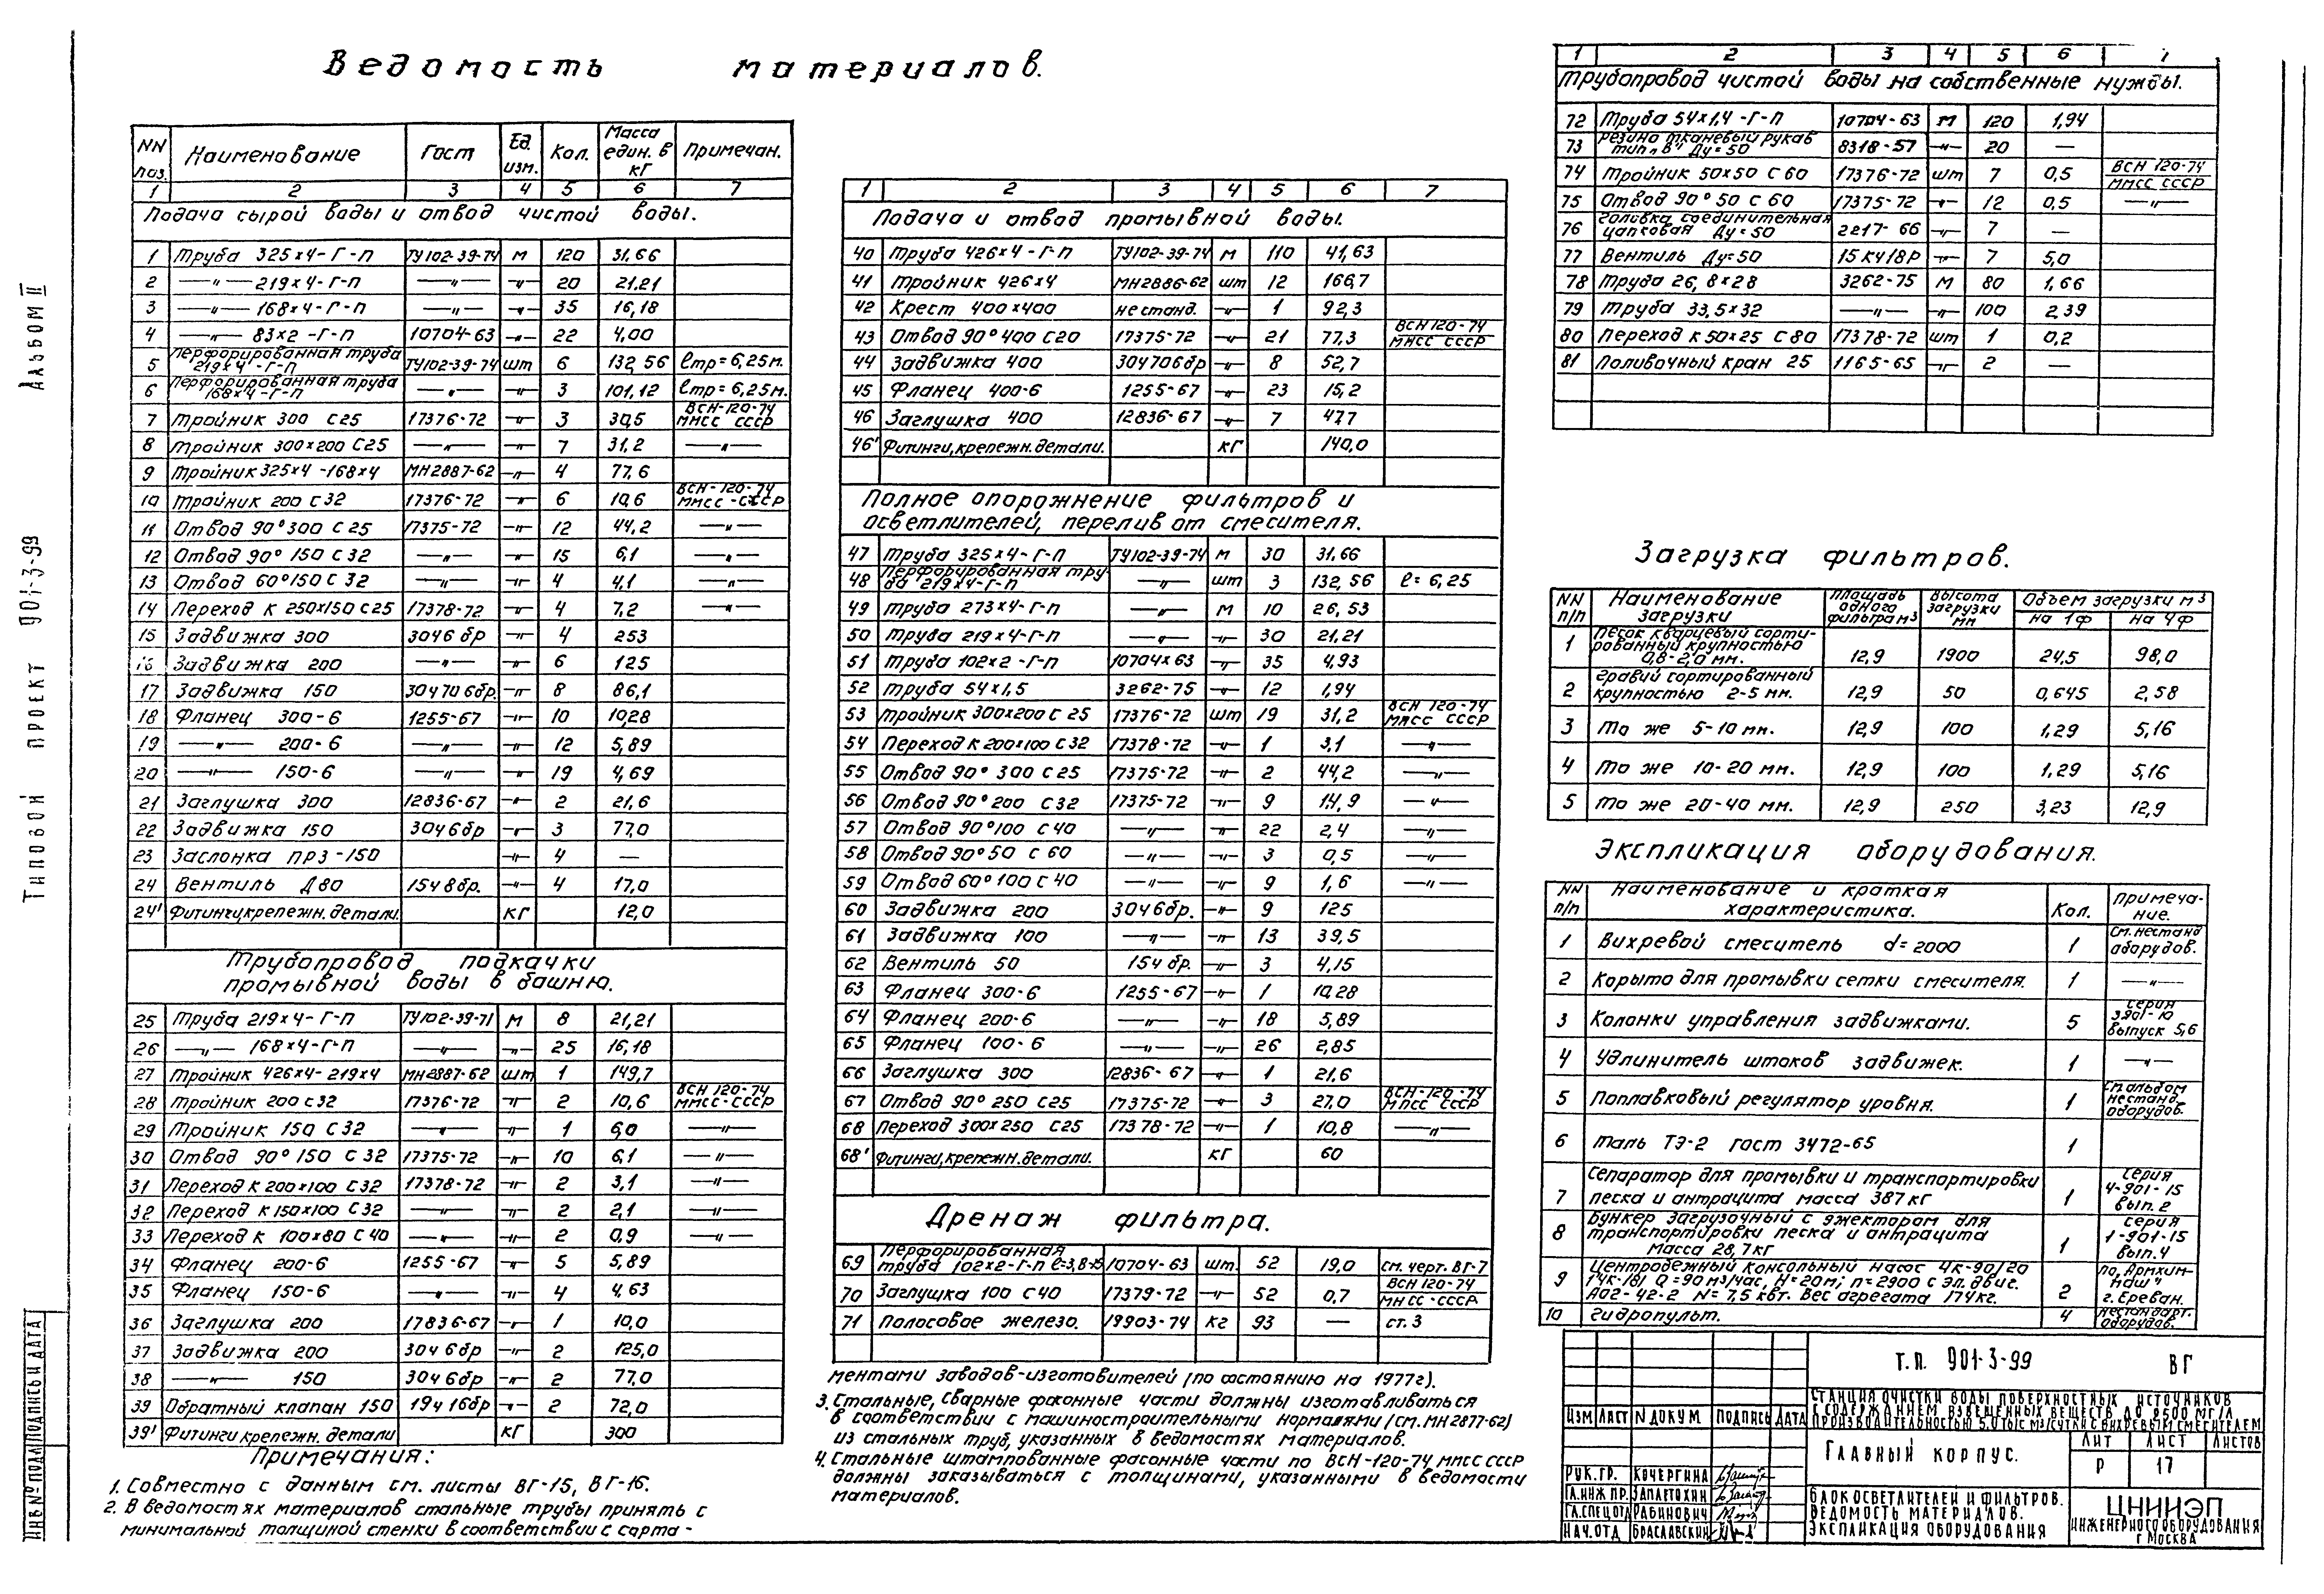 Ведомость материалов.
Альбом II
Типовой проект 901-3-99
ИНВ № ПОДЛ ПОДПИСЬ И ДАТА
NN поз. Наименование Гост Ед. изм. Кол. Масса един. в кг Примечан.
1 2 3 4 5 6 7
Подача сырой воды и отвод чистой воды.
1 Труба 325×4-Г-П ТУ102-39-74 м 120 31,66
2 —"— 219×4-Г-П —"— —"— 20 21,21
3 —"— 168×4-Г-П —"— —"— 35 16,18
4 —"— 83×2-Г-П 10704-63 —"— 22 4,00
5 Перфорированная труба 219×4-Г-П ТУ102-39-74 шт 6 132,56 ℓтр=6,25м.
6 Перфорированная труба 168×4-Г-П —"— —"— 3 101,12 ℓтр=6,25м.
7 Тройник 300 С25 17376-72 —"— 3 30,5 ВСН-120-74 ММСС СССР
8 Тройник 300×200 С25 —"— —"— 7 31,2 —"—
9 Тройник 325×4-168×4 МН2887-62 —"— 4 77,6
10 Тройник 200 С32 17376-72 —"— 6 10,6 ВСН-120-74 ММСС-СССР
11 Отвод 90°300 С25 17375-72 —"— 12 44,2 —"—
12 Отвод 90° 150 С32 —"— —"— 15 6,1 —"—
13 Отвод 60°150 С32 —"— —"— 4 4,1 —"—
14 Переход К 250×150 С25 17378-72 —"— 4 7,2 —"—
15 Задвижка 300 30ч6бр —"— 4 253
16 Задвижка 200 —"— —"— 6 125
17 Задвижка 150 30ч706бр. —"— 8 86,1
18 Фланец 300-6 1255-67 —"— 10 10,28
19 —"— 200-6 —"— —"— 12 5,89
20 —"— 150-6 —"— —"— 19 4,69
21 Заглушка 300 12836-67 —"— 2 21,6
22 Задвижка 150 30ч6бр —"— 3 77,0
23 Заслонка ПРЗ-150 —"— 4 —
24 Вентиль Д80 15ч8бр. —"— 4 17,0
24' Фитинги,крепежн.детали. кг 12,0
Трубопровод подкачки
промывной воды в башню.
25 Труба 219×4-Г-П ТУ102-39-71 м 8 21,21
26 —"— 168×4-Г-П —"— —"— 25 16,18
27 Тройник 426×4-219×4 МН2887-62 шт 1 149,7
28 Тройник 200 С32 17376-72 —"— 2 10,6 ВСН 120-74 ММСС-СССР
29 Тройник 150 С32 —"— —"— 1 6,0 —"—
30 Отвод 90°150 С32 17375-72 —"— 10 6,1 —"—
31 Переход К 200×100 С32 17378-72 —"— 2 3,1 —"—
32 Переход К 150×100 С32 —"— —"— 2 2,1 —"—
33 Переход К 100×80 С40 —"— —"— 2 0,9 —"—
34 Фланец 200-6 1255-67 —"— 5 5,89
35 Фланец 150-6 —"— —"— 4 4,63
36 Заглушка 200 17836-67 —"— 1 10,0
37 Задвижка 200 30ч6бр —"— 2 125,0
38 —"— 150 30ч6бр —"— 2 77,0
39 Обратный клапан 150 19ч16бр —"— 2 72,0
39' Фитинги крепежн. детали кг 300
Примечания:
1. Совместно с данным см. листы ВГ-15, ВГ-16.
2. В ведомостях материалов стальные трубы принять с
минимальной толщиной стенки в соответствии с сорта-
1 2 3 4 5 6 7
Подача и отвод промывной воды.
40 Труба 426×4-Г-П ТУ102-39-74 м 110 41,63
41 Тройник 426×4 МН2886-62 шт 12 166,7
42 Крест 400×400 нестанд. —"— 1 92,3
43 Отвод 90°400 С20 17375-72 —"— 21 77,3 ВСН 120-74 ММСС СССР
44 Задвижка 400 30ч706бр —"— 8 52,7
45 Фланец 400-6 1255-67 —"— 23 15,2
46 Заглушка 400 12836-67 —"— 7 47,7
46' Фитинги,крепежн.детали. кг 140,0
Полное опорожнение фильтров и
осветлителей, перелив от смесителя.
47 Труба 325×4-Г-П ТУ102-39-74 м 30 31,66
48 Перфорированная труба 219×4-Г-П —"— шт 3 132,56 ℓ=6,25
49 Труба 273×4-Г-П —"— м 10 26,53
50 Труба 219×4-Г-П —"— —"— 30 21,21
51 Труба 102×2-Г-П 10704×63 —"— 35 4,93
52 Труба 54×1,5 3262-75 —"— 12 1,94
53 Тройник 300×200 С25 17376-72 шт 19 31,2 ВСН 120-74 ММСС СССР
54 Переход К 200×100 С32 17378-72 —"— 1 3,1 —"—
55 Отвод 90° 300 С25 17375-72 —"— 2 44,2 —"—
56 Отвод 90°200 С32 17375-72 —"— 9 14,9 —"—
57 Отвод 90°100 С40 —"— —"— 22 2,4 —"—
58 Отвод 90°50 С60 —"— —"— 3 0,5 —"—
59 Отвод 60°100 С40 —"— —"— 9 1,6 —"—
60 Задвижка 200 30ч6бр. —"— 9 125
61 Задвижка 100 —"— —"— 13 39,5
62 Вентиль 50 15ч бр. —"— 3 4,15
63 Фланец 300-6 1255-67 —"— 1 10,28
64 Фланец 200-6 —"— —"— 18 5,89
65 Фланец 100-6 —"— —"— 26 2,85
66 Заглушка 300 12836-67 —"— 1 21,6
67 Отвод 90° 250 С25 17375-72 —"— 3 27,0 ВСН-120-74 ММСС СССР
68 Переход 300×250 С25 17378-72 —"— 1 10,8 —"—
68' Фитинги,крепежн.детали. кг 60
Дренаж фильтра.
69 Перфорированная труба 102×2-Г-П 10704-63 шт. 52 19,0 см. черт. ВГ-7
70 Заглушка 100 С40 17379-72 —"— 52 0,7 ВСН 120-74 ММСС-СССР
71 Полосовое железо. 19903-74 кг 93 — ст. 3
ментами заводов-изготовителей (по состоянию на 1977г).
3. Стальные, сварные фасонные части должны изготавливаться
в соответствии с машиностроительными нормалями (см. МН 2877-62)
из стальных труб, указанных в ведомостях материалов.
4. Стальные штампованные фасонные части по ВСН-120-74 ММСС СССР
должны заказываться с толщинами, указанными в ведомости
материалов.
1 2 3 4 5 6 7
Трубопровод чистой воды на собственные нужды.
72 Труба 54×1,4-Г-П 10704-63 м 120 1,94
73 Резино тканевый рукав тип „В" Ду=50 8318-57 —"— 20 —
74 Тройник 50×50 С60 17376-72 шт 7 0,5 ВСН 120-74 ММСС СССР
75 Отвод 90°50 С60 17375-72 —"— 12 0,5 —"—
76 Головка соединительная цапковая Ду=50 2217-66 —"— 7 —
77 Вентиль Ду=50 15кч18р —"— 7 5,0
78 Труба 26,8×28 3262-75 м 80 1,66
79 Труба 33,5×32 —"— —"— 100 2,39
80 Переход К 50×25 С80 17378-72 шт 1 0,2
81 Поливочный кран 25 1165-65 —"— 2 —
Загрузка фильтров.
NN п/п Наименование загрузки Площадь одного фильтра м³ Высота загрузки мм Объем загрузки м³ на 1ф на 4ф
1 Песок кварцевый сортированный крупностью 0,8-2,0 мм. 12,9 1900 24,5 98,0
2 Гравий сортированный крупностью 2-5 мм. 12,9 50 0,645 2,58
3 То же 5-10 мм. 12,9 100 1,29 5,16
4 То же 10-20 мм. 12,9 100 1,29 5,16
5 То же 20-40 мм. 12,9 250 3,23 12,9
Экспликация оборудования.
NN п/п Наименование и краткая характеристика. Кол. Примечание.
1 Вихревой смеситель d=2000 1 См. нестанд оборудов.
2 Корыто для промывки сетки смесителя. 1 —"—
3 Колонки управления задвижками. 5 Серия 3.901-10 выпуск 5,6
4 Удлинитель штоков задвижек. 1 —"—
5 Поплавковый регулятор уровня. 1 См альбом нестанд. оборудов.
6 Таль ТЭ-2 гост 3472-65 1
7 Сепаратор для промывки и транспортировки песка и антрацита масса 387 кг 1 Серия 4-901-15 вып. 2
8 Бункер загрузочный с эжектором для транспортировки песка и антрацита масса 28,7кг 1 Серия 1-901-15 вып. 4
9 Центробежный консольный насос 4К-90/20 14К-18/ Q=90м³/час, Н=20м; n=2900 с эл. двиг. АО2-42-2 N=7,5 квт. Вес агрегата 174кг. 2 по „Армхиммаш" г. Ереван.
10 Гидропульт. 4 нестандарт. оборудов.
Т.П. 901-3-99 ВГ
СТАНЦИЯ ОЧИСТКИ ВОДЫ ПОВЕРХНОСТНЫХ ИСТОЧНИКОВ
С СОДЕРЖАНИЕМ ВЗВЕШЕННЫХ ВЕЩЕСТВ ДО 2500 МГ/Л
ПРОИЗВОДИТЕЛЬНОСТЬЮ 5.0 ТЫС М³/СУТКИ С ВИХРЕВЫМ СМЕСИТЕЛЕМ
ИЗМ ЛИСТ N ДОКУМ ПОДПИСЬ ДАТА
ГЛАВНЫЙ КОРПУС.
ЛИТ ЛИСТ ЛИСТОВ
Р 17
РУК.ГР. КОЧЕРГИНА
ГЛ.ИНЖ.ПР. ЗАПЛЕТОХИН
ГЛ.СПЕЦ.ОТД РАБИНОВИЧ
НАЧ.ОТД БРАСЛАВСКИЙ
БЛОК ОСВЕТЛИТЕЛЕЙ И ФИЛЬТРОВ.
ВЕДОМОСТЬ МАТЕРИАЛОВ.
ЭКСПЛИКАЦИЯ ОБОРУДОВАНИЯ
ЦНИИЭП
ИНЖЕНЕРНОГО ОБОРУДОВАНИЯ
Г МОСКВА